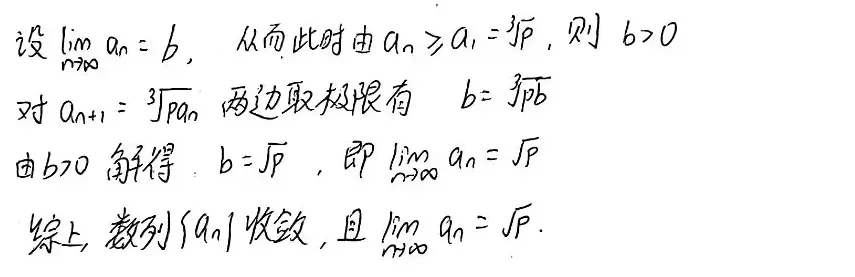 设 lim_{n→∞} aₙ = b, 从而此时由 aₙ ≥ a₁ = ∛p, 则 b>0
对 aₙ₊₁ = ∛(paₙ) 两边取极限有 b = ∛(pb)
由 b>0 解得 b = √p , 即 lim_{n→∞} aₙ = √p
综上, 数列{aₙ}收敛, 且 lim_{n→∞} aₙ = √p.